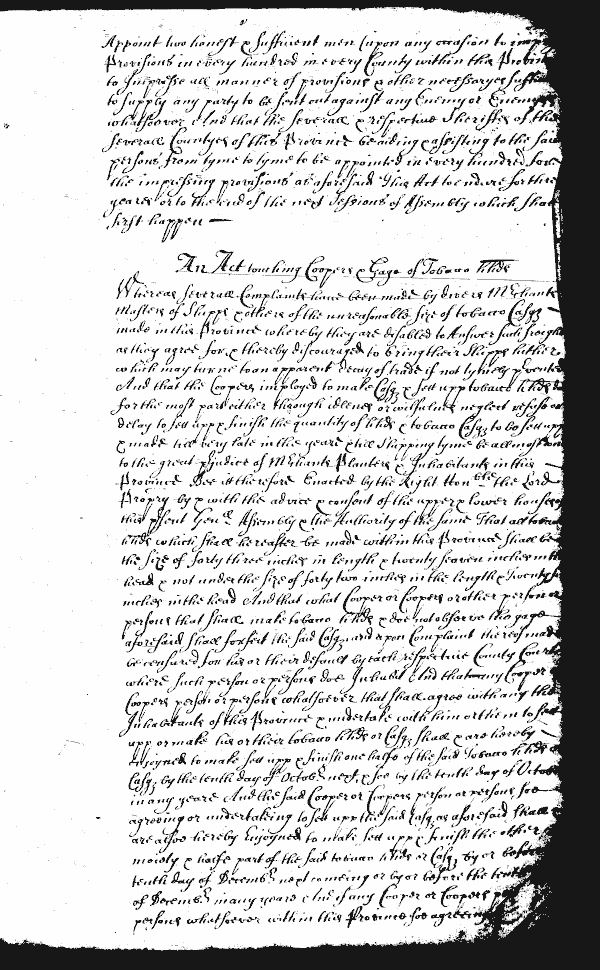 Appoint two honest & sufficient men (upon any occasion to
Provisions in every hundred in every County within this Province
to Impresse all manner of provisions & other necessaryes
to supply any party to be sent out against any Enemy or Enemyes
whatsoever And that the severall & respective Sheriffes of the
severall Countyes of this Province be aiding & assisting to the said
persons from tyme to tyme to be appointed in every hundred for
the impressing provisions as aforesaid This Act to endure for three
yeares or to the end of the next Sessions of Assembly which shall
first happen —
An Act touching Coopers & Gage of Tobacco hhds
Whereas severall Complaints have been made by divers Mrchants
Masters of Shipps & others of the unreasonable size of tobacco Casq
made in this Province whereby they are disabled to Answer such freight
as they agree for & thereby discouraged to bring their Shipps hither
which may turne to an apparent decay of trade if not tymely prvented
And that the Coopers imployed to make Casq & sett upp tobacco hhds
for the most part either through idlenes or wilfulnes neglect refuse or
delay to sett upp & finish the quantity of hhds & tobacco Casq to be sett upp
& made till very late in the yeare & till Shipping tyme be allmost
to the great prjudice of Mrchants Planters & Inhabitants in this
Province Bee it therefore Enacted by the Right Honble the Lord
Propry by & with the advice & consent of the upper & lower houses
this prsent Genll Assembly & the Authority of the same That all
hhds which shall hereafter be made within this Province shall be
the size of forty three inches in length & twenty seaven inches in the
head & not under the size of forty two inches in the length & twenty
inches in the head And that what Cooper or Coopers or other person or
persons that shall make tobacco hhds & doe not observe this gage
aforesaid shall forfeit the said Casq and upon Complaint thereof made
be censured for his or their default by each respective County Court
where such person or persons doe Inhabit And that any Cooper
Coopers person or persons whatsoever that shall agree with any the
Inhabitants of this Province & undertake with him or them to sett
upp or make his or their tobacco hhds or Casq shall & are hereby
enjoyned to make sett upp & finish one halfe of the said Tobacco hhds
Casq by the tenth day of Octobr next & soe by the tenth day of October
in any yeare And the said Cooper or Coopers person or persons soe
agreeing or undertakeing to sett upp the said Casq as aforesaid shall
are alsoe hereby Enjoyned to make sett upp & finish the other
moiety & halfe part of the said tobacco hhds or Casq by or before
tenth day of Decembr next comeing or by or before the tenth
of Decembr in any yeare And if any Cooper or Coopers
persons whatsoever within this Province soe agreeing